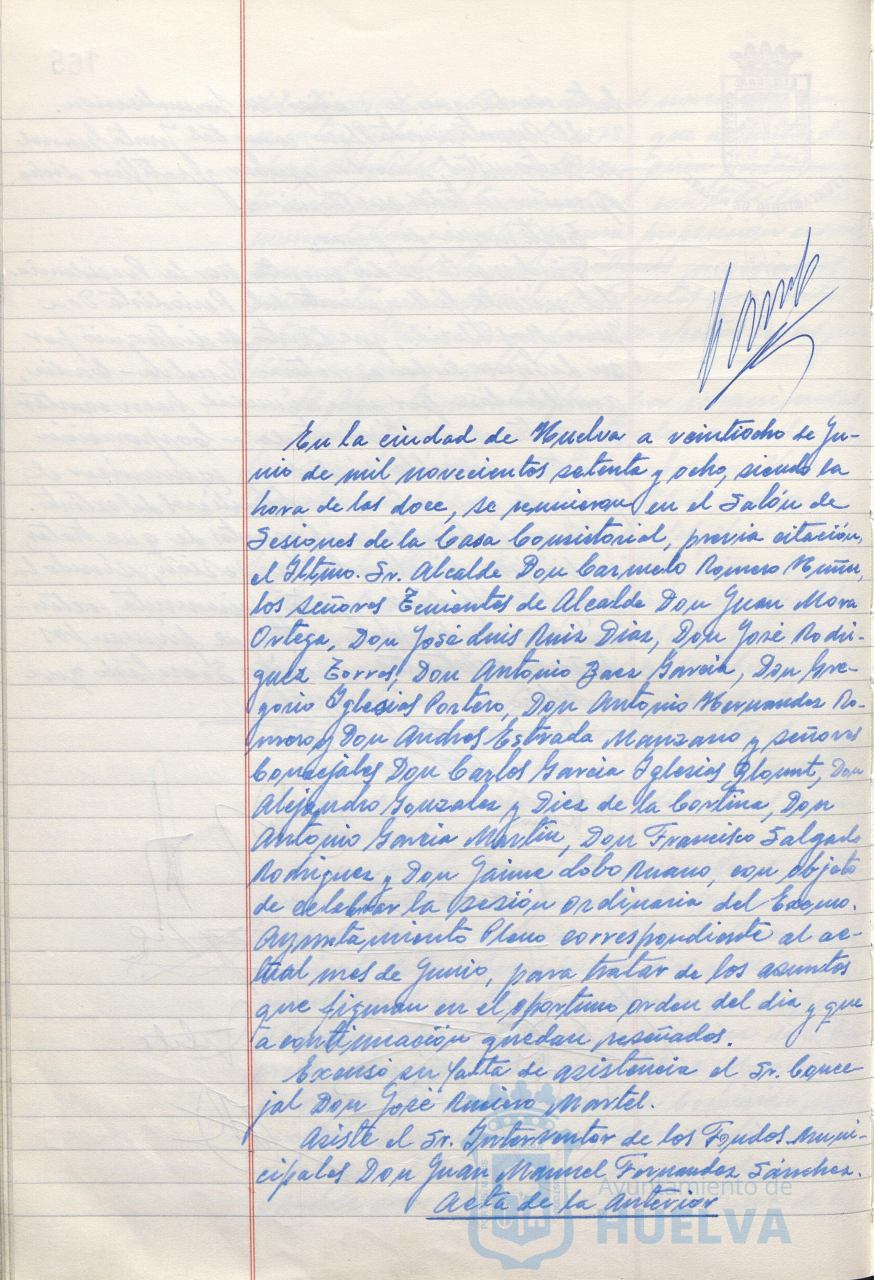 En la ciudad de Huelva a veintiocho de Ju-
nio de mil novecientos setenta y ocho, siendo la
hora de las doce, se reunieron en el Salón de
Sesiones de la Casa Consistorial, previa citación,
el Iltmo. Sr. Alcalde Don Carmelo Romero Núñez,
los señores Tenientes de Alcalde Don Juan Mora
Ortega, Don José Luis Ruiz Díaz, Don José Rodri-
guez Torres, Don Antonio Baez García, Don Gre-
gorio Iglesias Portero, Don Antonio Hernandez Ro-
mero y Don Andrés Estrada Manzano y señores
Concejales Don Carlos García Iglesias Blount, Don
Alejandro Gonzalez y Diez de la Cortina, Don
Antonio García Martín, Don Francisco Salgado
Rodriguez y Don Jaime Lobo Ruano, con objeto
de celebrar la sesión ordinaria del Excmo.
Ayuntamiento Pleno correspondiente al ac-
tual mes de Junio, para tratar de los asuntos
que figuran en el oportuno orden del día y que
a continuación quedan reseñados.
Excusó su falta de asistencia el Sr. Conce
jal Don José Martel.
Asiste el Sr. Interventor de los Fondos Muni-
cipales Don Juan Manuel Fernandez Sánchez.
Acta de la anterior
Ayuntamiento de
HUELVA